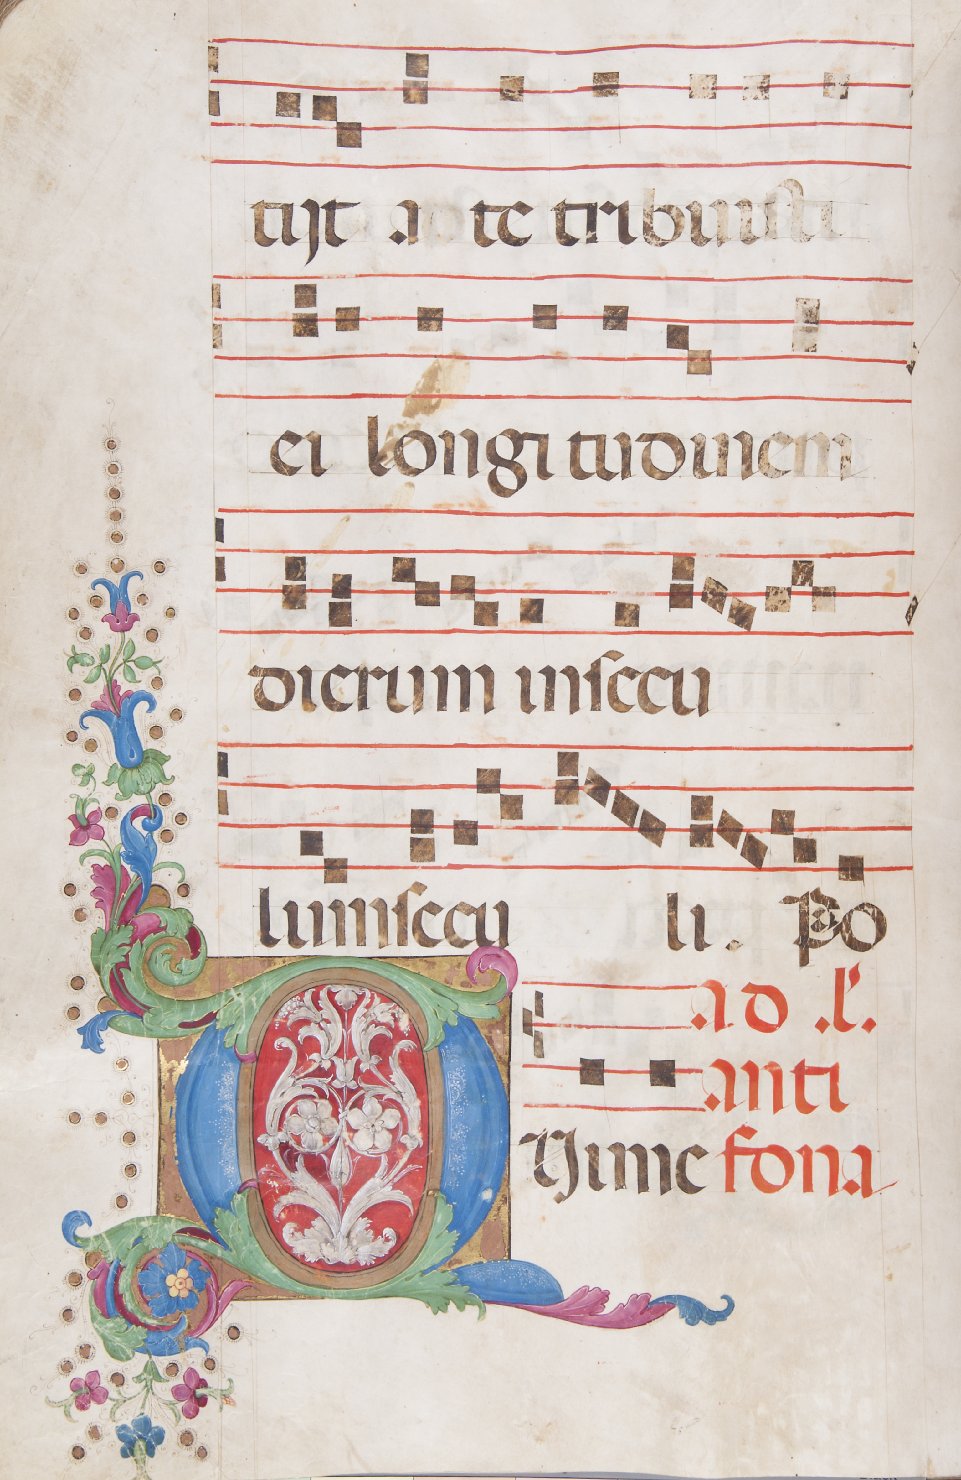 tijt a te tribuisti
ei longitudinem
dierum in secu
lum secu li. Po
ad l'.
anti
QVi me fona